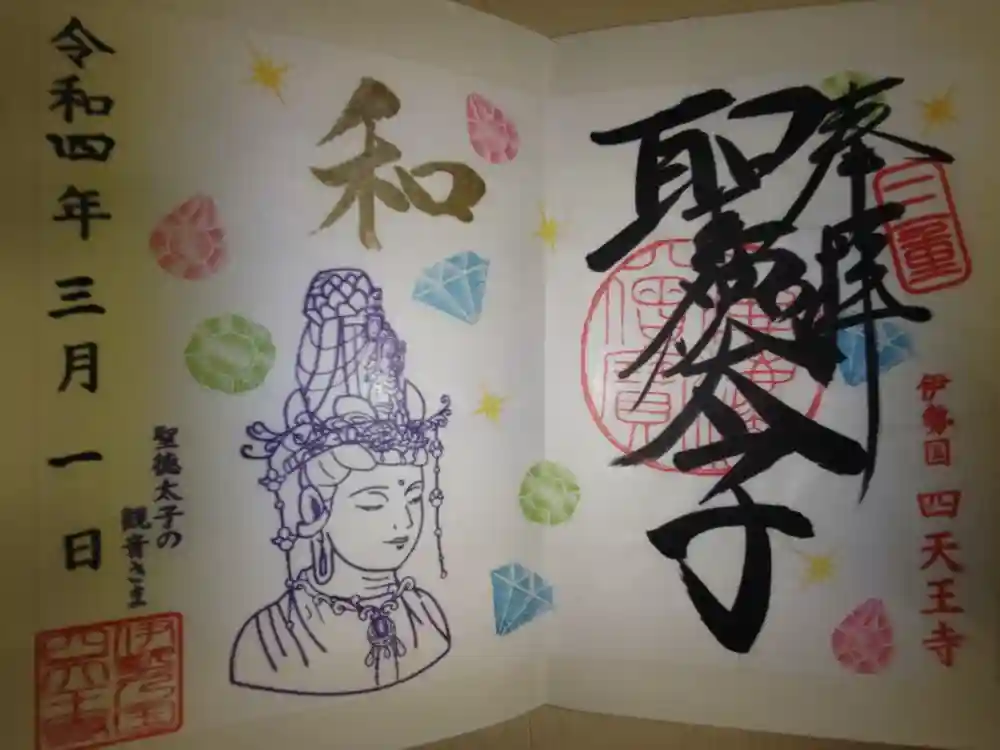 奉拝
聖徳太子
三重
伊勢国 四天王寺
和
聖徳太子の
観音さま
令和四年三月一日